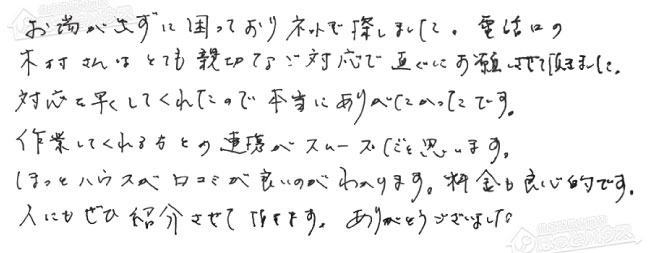 お湯が出ずに困っておりネットで探しました。電話口の
木村さんはとても親切なご対応で直ぐにお願いさせて頂きました。
対応も早くしてくれたので本当にありがたかったです。
作業してくれる方との連携がスムーズだと思います。
ほっとハウスが口コミが良いのがわかります。料金も良心的です。
人にもぜひ紹介させて頂きます。ありがとうございました。